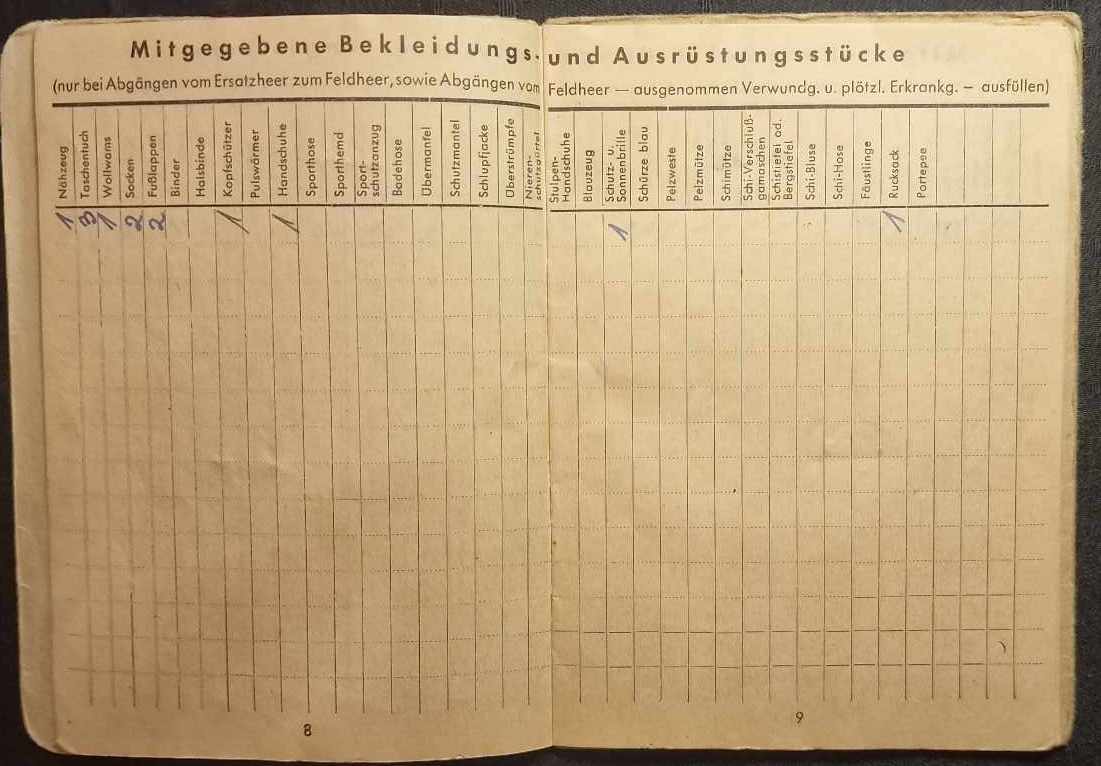 Mitgegebene Bekleidungs- und Ausrüstungsstücke
(nur bei Abgängen vom Ersatzheer zum Feldheer, sowie Abgängen vom Feldheer — ausgenommen Verwundg. u. plötzl. Erkrankg. — ausfüllen)
Nähzeug
Taschentuch
Wollwams
Socken
Fußlappen
Binder
Halsbinde
Kopfschützer
Pulswärmer
Handschuhe
Sporthose
Sporthemd
Sport-
schutzanzug
Badehose
Übermantel
Schutzmantel
Schlupfjacke
Überstrümpfe
Nieren-
schutzgürtel
Stulpen-
Handschuhe
Blauzeug
Schutz- u.
Sonnenbrille
Schürze blau
Pelzweste
Pelzmütze
Schimütze
Schi-Verschluß-
gamaschen
Schistiefel od.
Bergstiefel
Schi-Bluse
Schi-Hose
Fäustlinge
Rucksack
Portepee
1 3 1 2 2 1 1 1 1
8
9